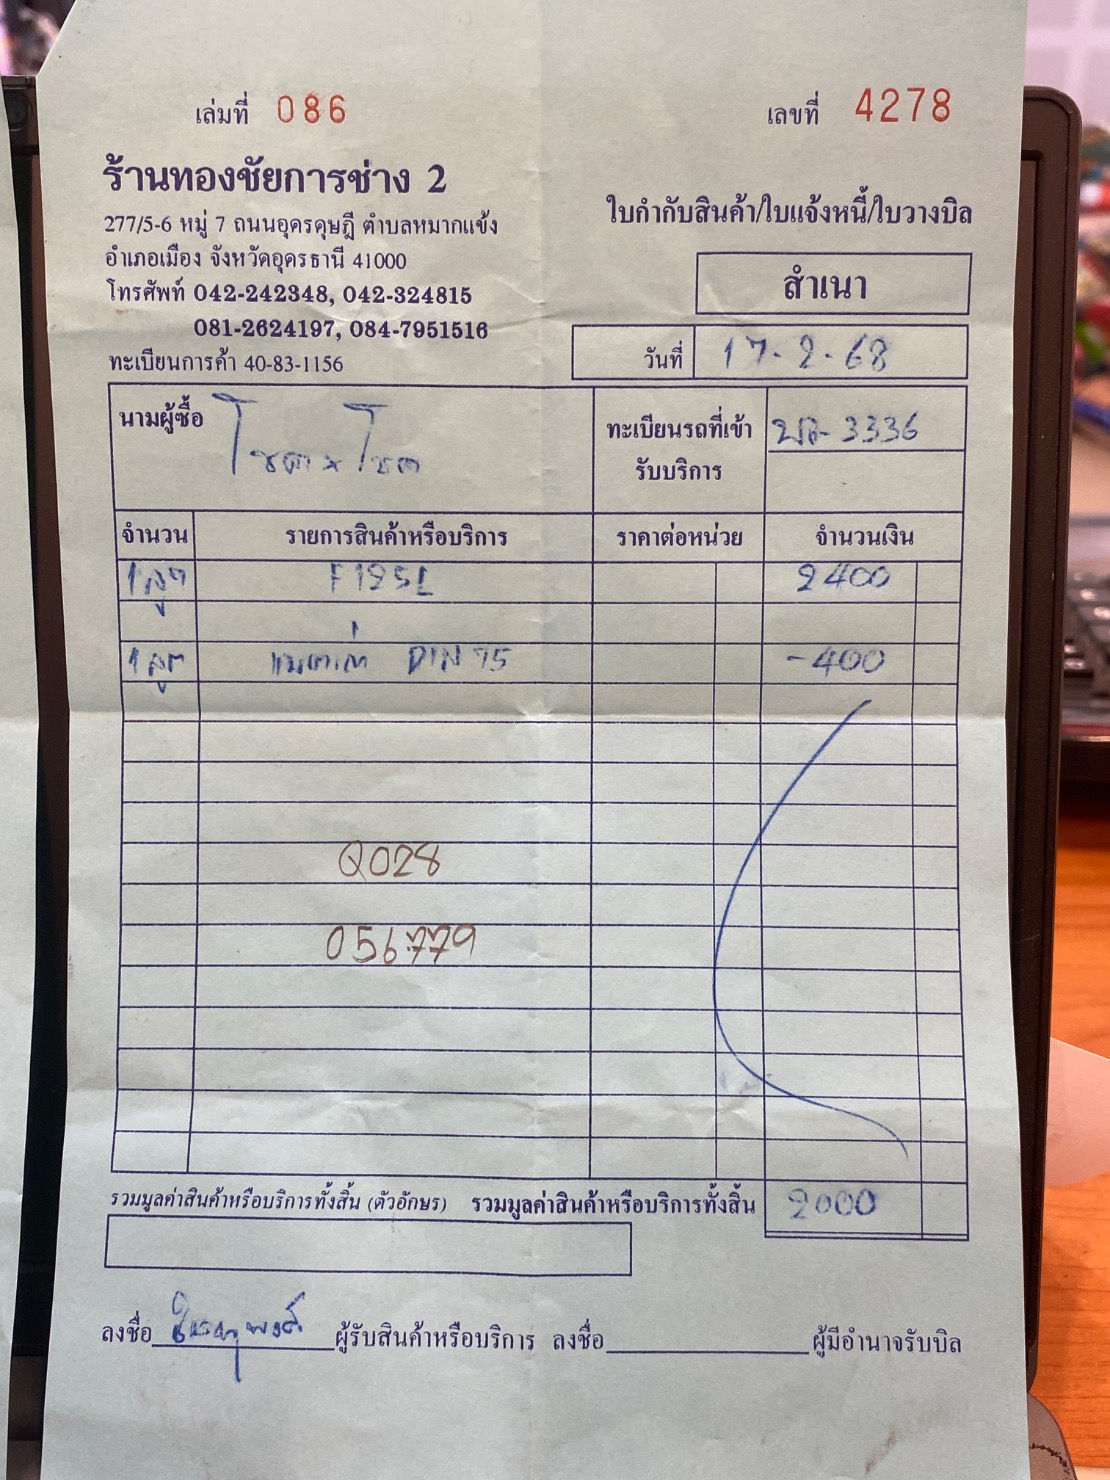 เล่มที่ 086
เลขที่ 4278
ร้านทองชัยการช่าง 2
277/5-6 หมู่ 7 ถนนอุดรดุษฎี ตำบลหมากแข้ง
อำเภอเมือง จังหวัดอุดรธานี 41000
โทรศัพท์ 042-242348, 042-324815
081-2624197, 084-7951516
ทะเบียนการค้า 40-83-1156
ใบกำกับสินค้า/ใบแจ้งหนี้/ใบวางบิล
สำเนา
วันที่ 17-2-68
นามผู้ซื้อ
ทะเบียนรถที่เข้า 3336
รับบริการ
จำนวน รายการสินค้าหรือบริการ ราคาต่อหน่วย จำนวนเงิน
1 ลูก F125L 2400
1 ลูก แบตเก่า DIN 75 -400
Q028
056779
รวมมูลค่าสินค้าหรือบริการทั้งสิ้น (ตัวอักษร) รวมมูลค่าสินค้าหรือบริการทั้งสิ้น 2000
ลงชื่อ ผู้รับสินค้าหรือบริการ ลงชื่อ ผู้มีอำนาจรับบิล